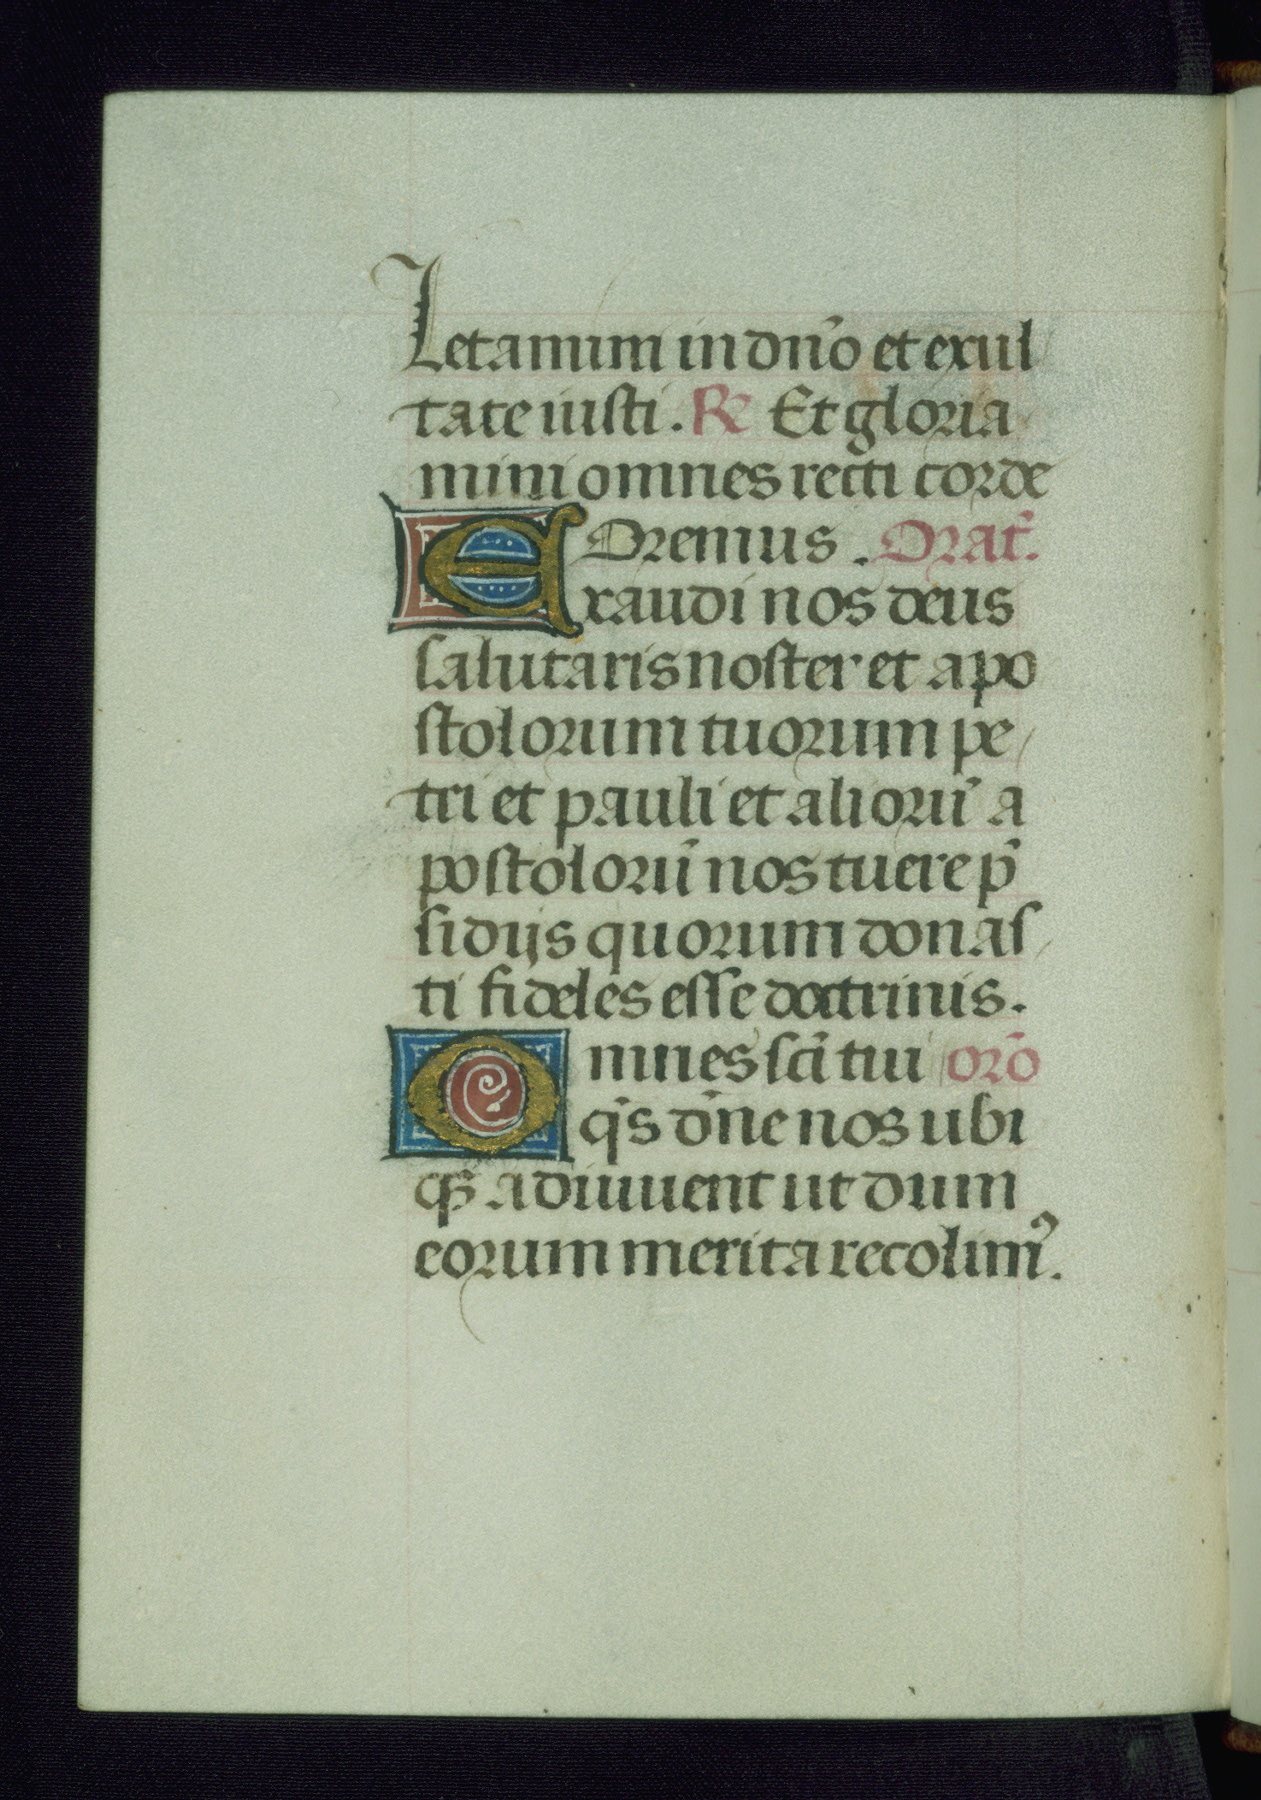 Letamini in dn̄o et exul
tate iusti. R̄ Et gloria
mini omnes recti corde
Oremus. Orat̄.
Exaudi nos deus
salutaris noster et apo
stolorum tuorum pe
tri et pauli et aliorū a
postolorū nos tuere p̄
sidijs quorum donas
ti fideles esse doctrinis.
Omnes sc̄i tui or̄o
q̄s dn̄e nos ubi
qꝫ adiuuent ut dum
eorum merita recolimꝰ.